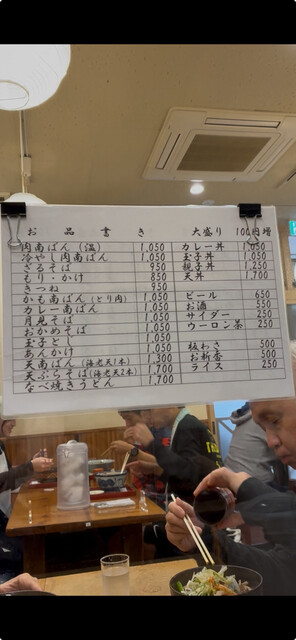 お品書き 大盛り 100円増
肉南ばん（温） 1,050
冷やし肉南ばん 1,050
ざるそば 950
もり・かけ 850
きつね 950
かも南ばん(とり肉) 1,050
カレー南ばん 1,050
月見そば 1,050
おかめそば 1,050
玉子とじ 1,050
あんかけ 1,050
天南ばん(海老天1本) 1,300
天ぷらそば(海老天2本) 1,700
なべ焼きうどん 1,700
カレー丼 1,050
玉子丼 1,050
親子丼 1,250
天丼 1,700
ビール 650
お酒 550
サイダー 250
ウーロン茶 250
板わさ 500
お新香 500
ライス 250